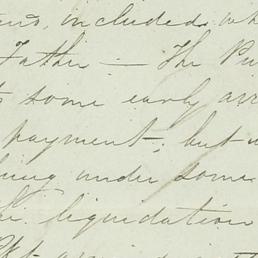 included, wh
Father — The Pu
some early arr
payment; but
under some
liquidation